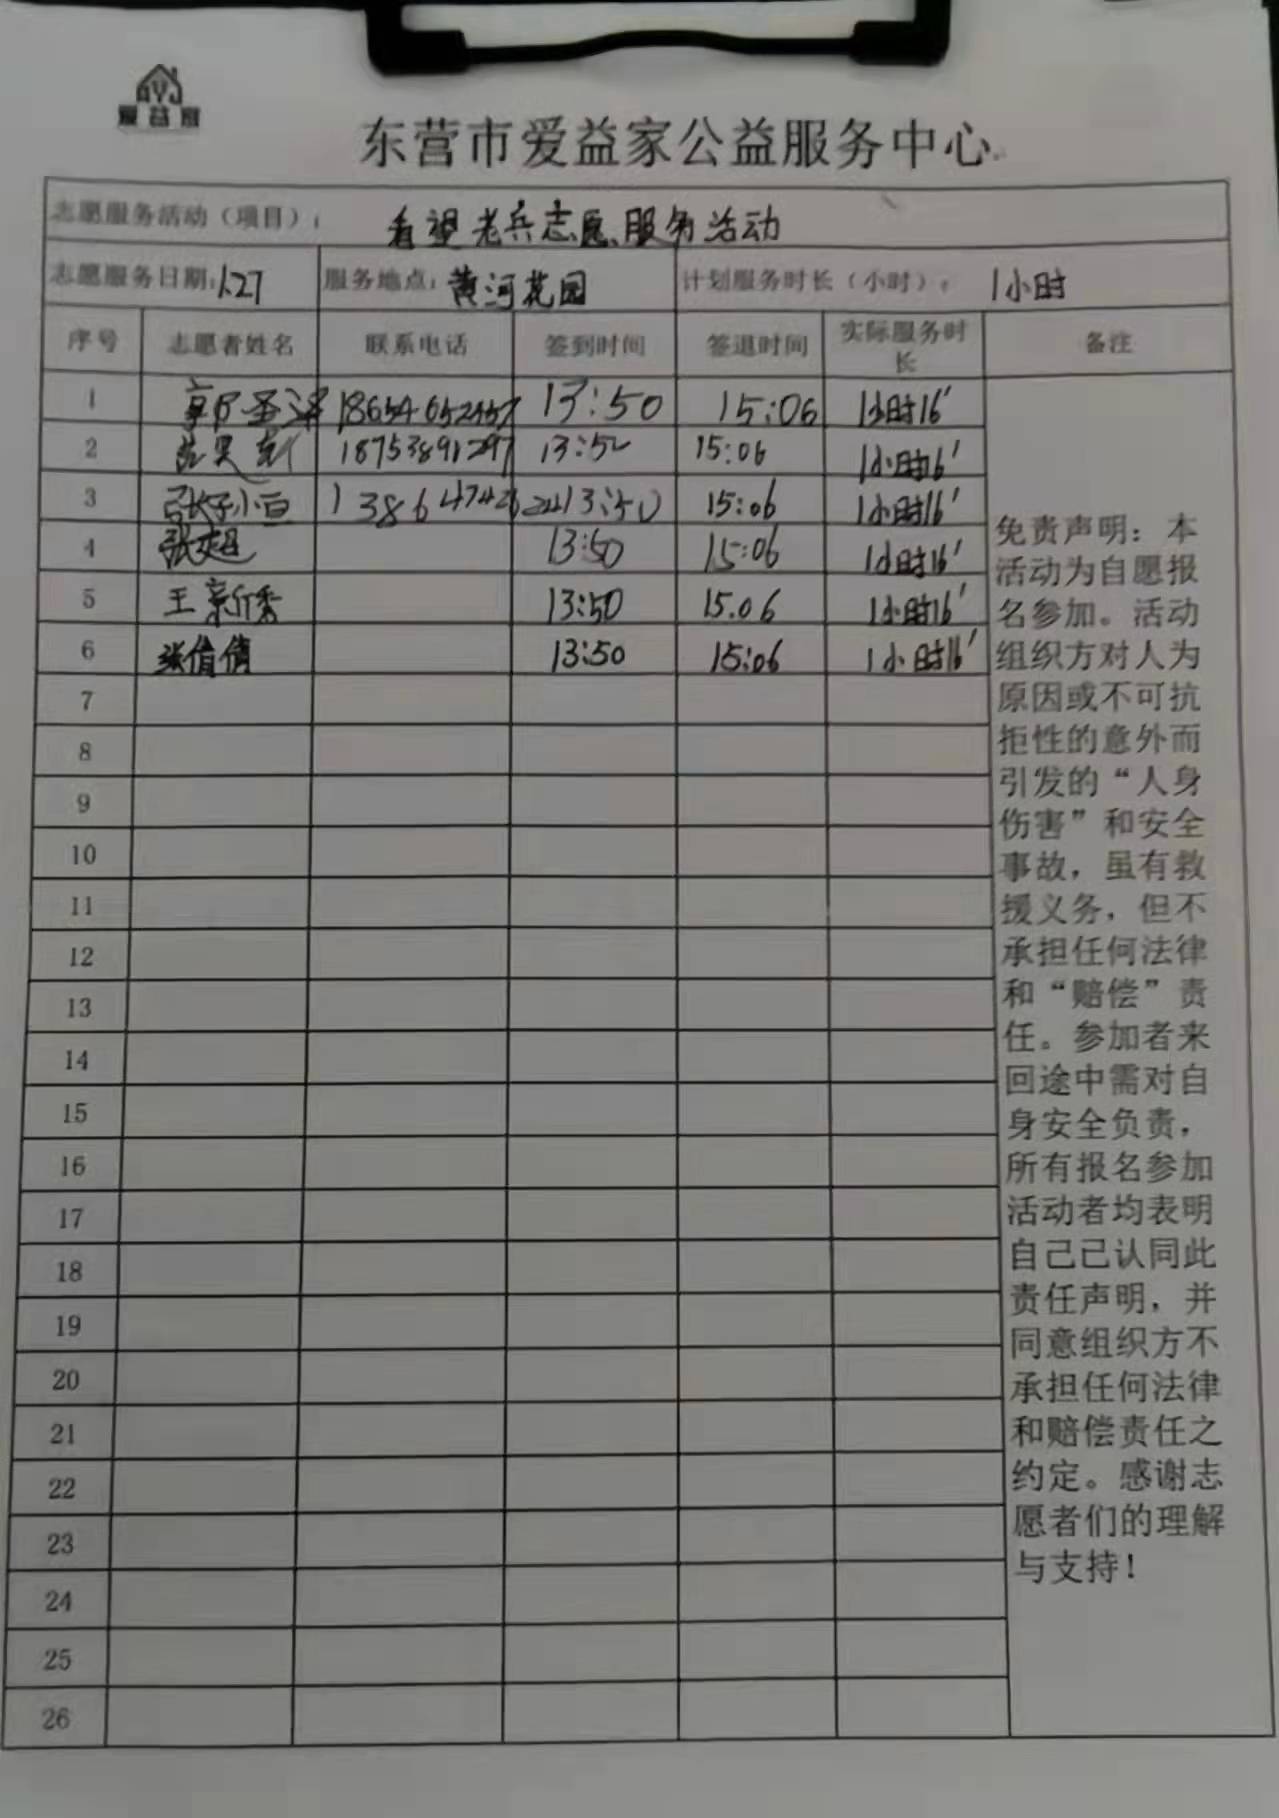 爱益家
东营市爱益家公益服务中心
志愿服务活动（项目）： 看望老兵志愿服务活动
志愿服务日期：1.27 服务地点：黄河花园 计划服务时长（小时）： 1小时
序号 志愿者姓名 联系电话 签到时间 签退时间 实际服务时长 备注
1 郭圣泽 18654652457 13:50 15:06 1小时16'
2 18753891297 13:50 15:06 1小时16'
3 张小 13:50 15:06 1小时16'
4 张超 13:50 15:06 1小时16'
5 王新秀 13:50 15.06 1小时16'
6 张倩倩 13:50 15:06 1小时16'
7
8
9
10
11
12
13
14
15
16
17
18
19
20
21
22
23
24
25
26
免责声明：本
活动为自愿报
名参加。活动
组织方对人为
原因或不可抗
拒性的意外而
引发的“人身
伤害”和安全
事故，虽有救
援义务，但不
承担任何法律
和“赔偿”责
任。参加者来
回途中需对自
身安全负责，
所有报名参加
活动者均表明
自己已认同此
责任声明，并
同意组织方不
承担任何法律
和赔偿责任之
约定。感谢志
愿者们的理解
与支持！